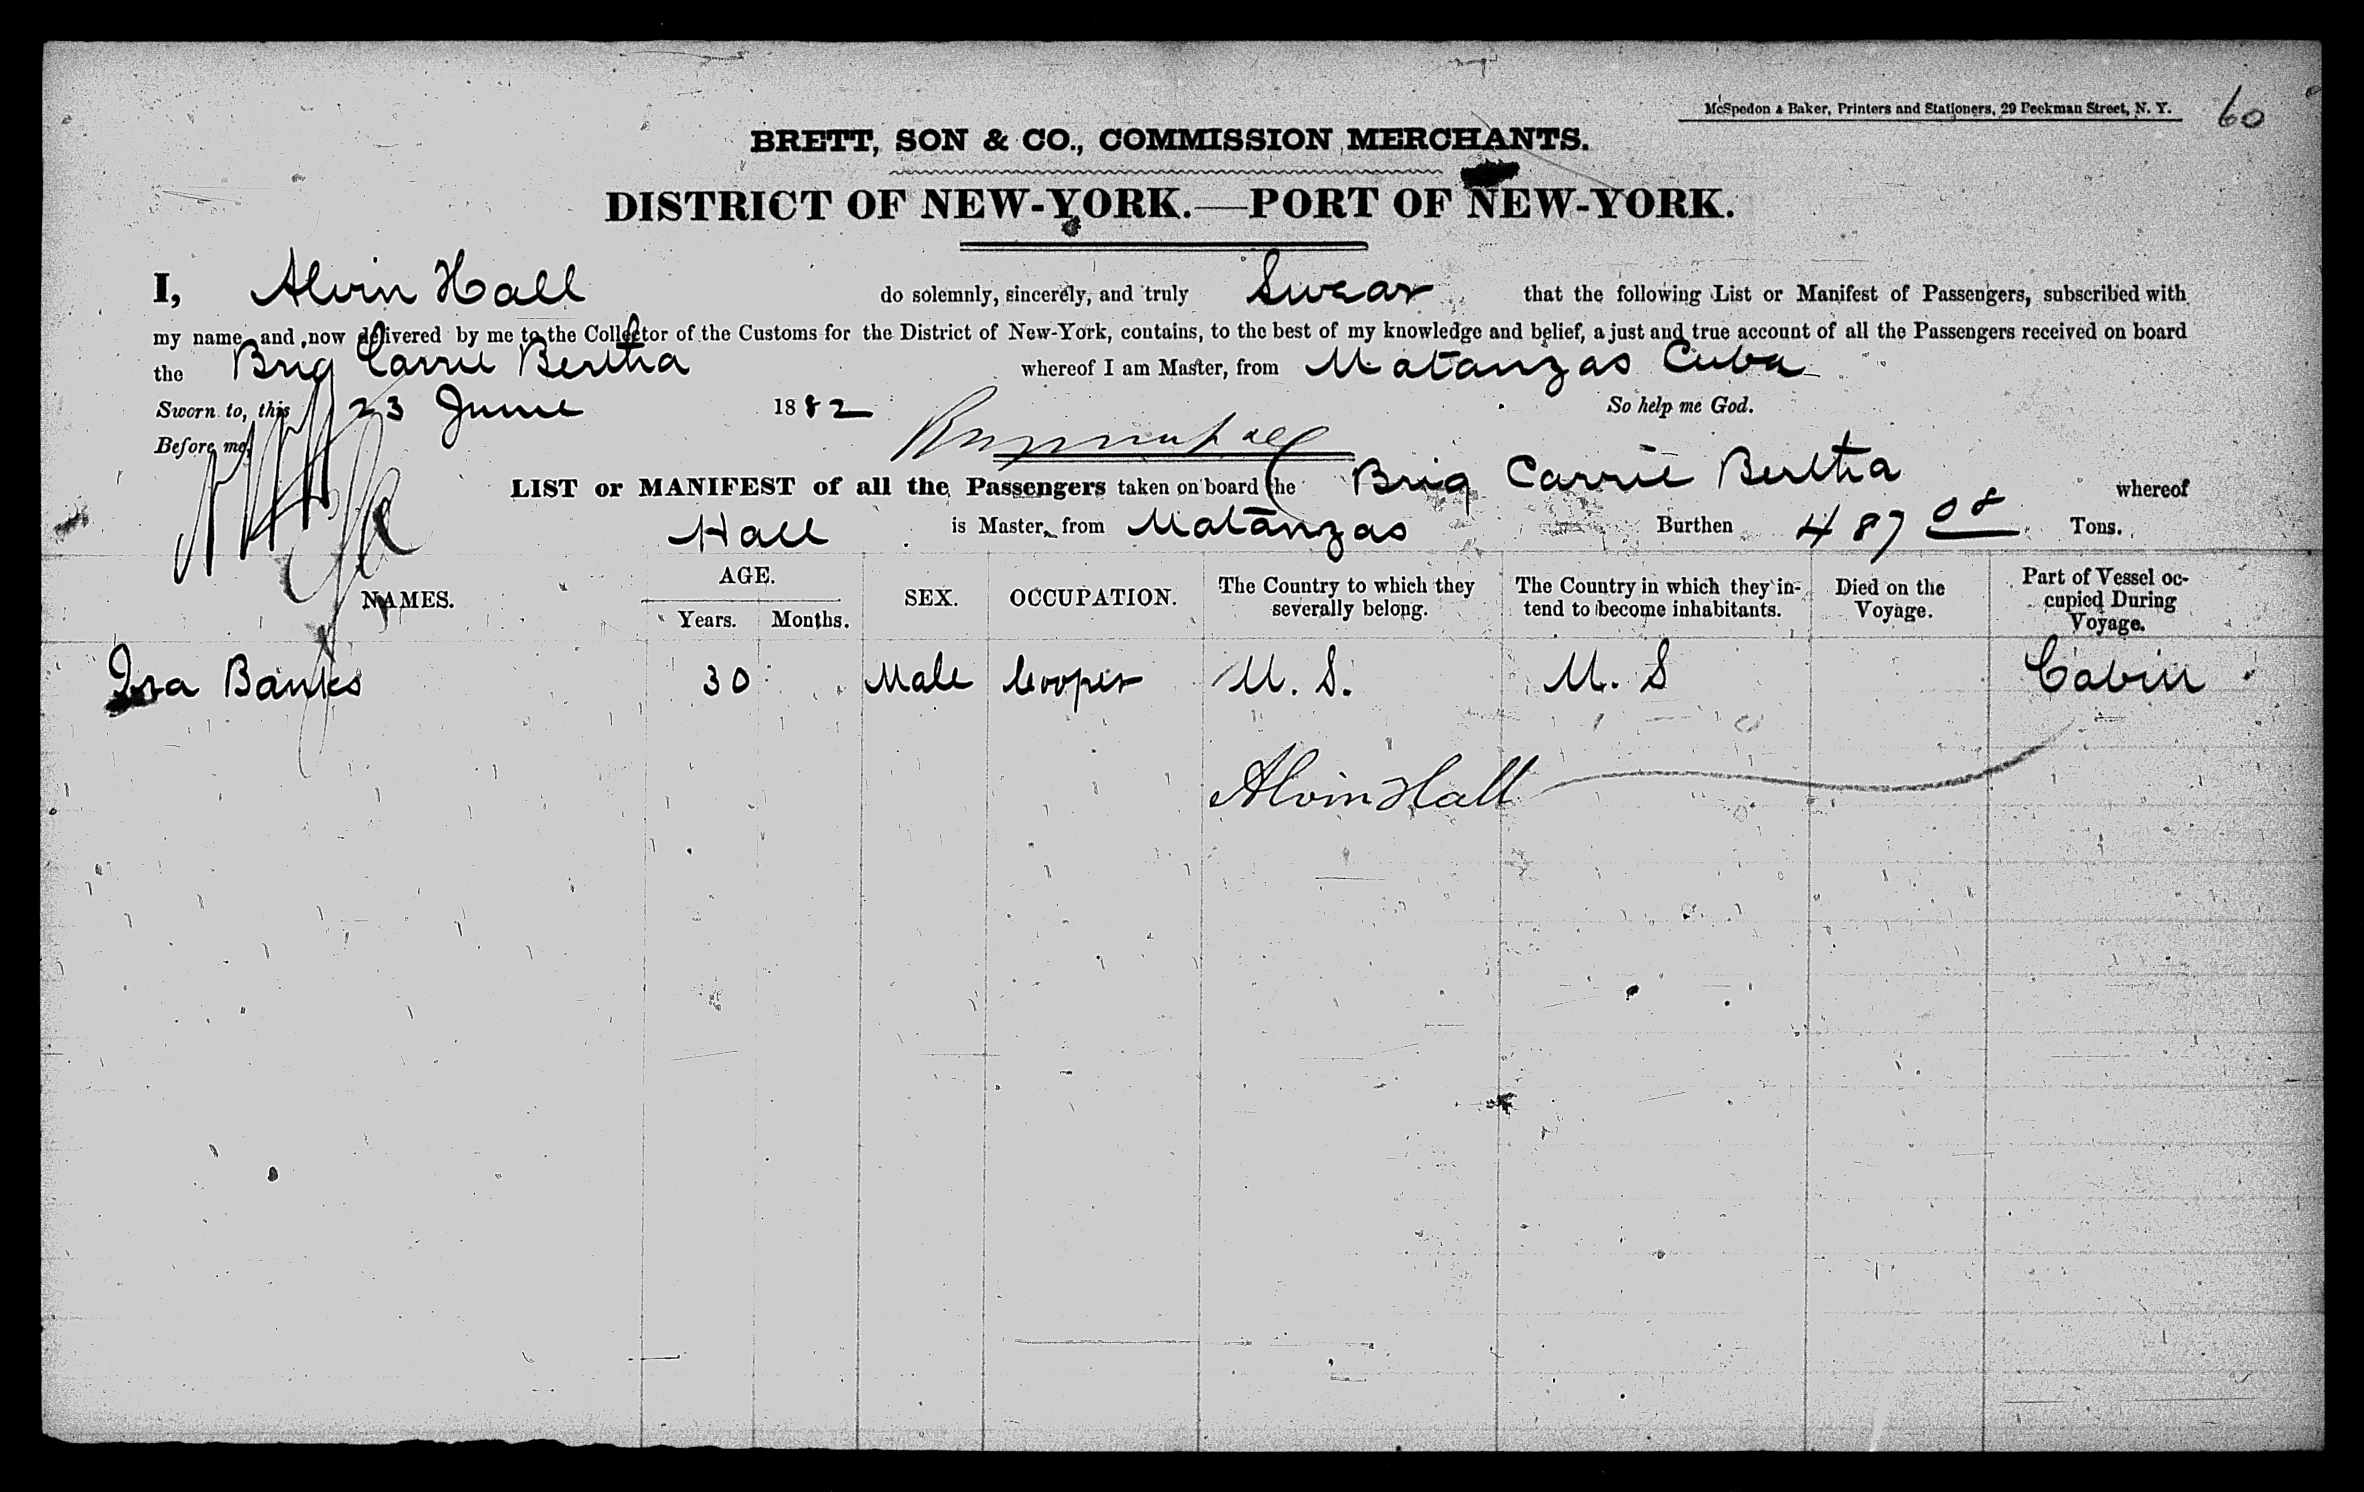 McSpedon & Baker, Printers and Stationers, 29 Beekman Street, N. Y.
60
BRETT, SON & CO., COMMISSION MERCHANTS.
DISTRICT OF NEW-YORK.—PORT OF NEW-YORK.
I, Alvin Hall do solemnly, sincerely, and truly Swear that the following List or Manifest of Passengers, subscribed with
my name and now delivered by me to the Collector of the Customs for the District of New-York, contains, to the best of my knowledge and belief, a just and true account of all the Passengers received on board
the Brig Carrie Bertha whereof I am Master, from Matanzas Cuba
Sworn to, this 23 June 1882 So help me God.
Before me,
LIST or MANIFEST of all the Passengers taken on board the Brig Carrie Bertha whereof
Hall is Master, from Matanzas Burthen 487 08 Tons.
NAMES. AGE. Years. Months. SEX. OCCUPATION. The Country to which they severally belong. The Country in which they intend to become inhabitants. Died on the Voyage. Part of Vessel occupied During Voyage.
Ira Banks 30 Male Cooper U. S. U. S Cabin
Alvin Hall